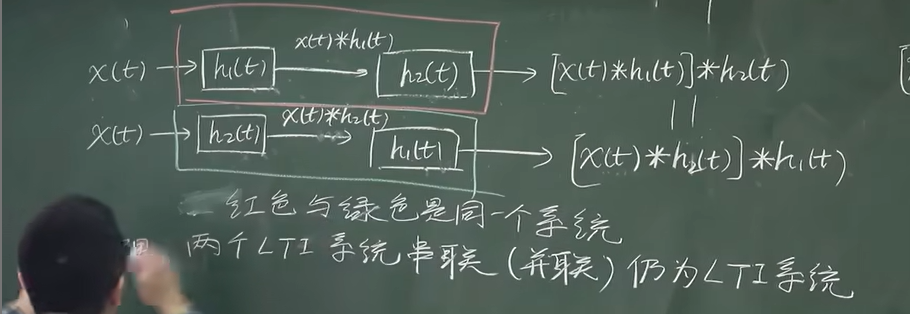 x(t) → h₁(t) x(t)*h₁(t) → h₂(t) → [x(t)*h₁(t)]*h₂(t)
||
x(t) → h₂(t) x(t)*h₂(t) → h₁(t) → [x(t)*h₂(t)]*h₁(t)
红色与绿色是同一个系统
两个LTI系统串联(并联)仍为LTI系统